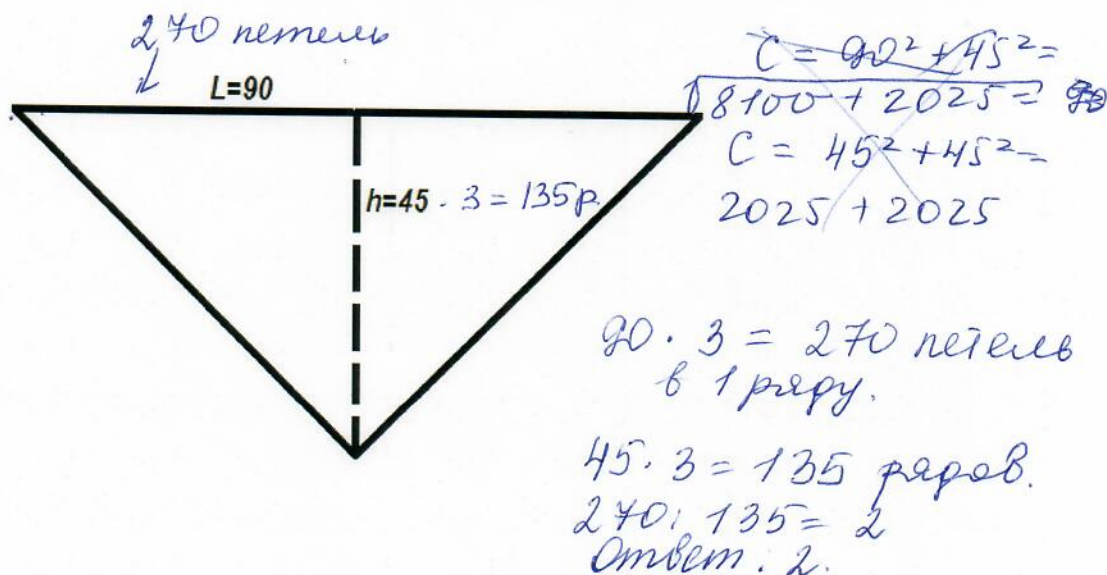 270 петель
L=90
h=45 · 3 = 135р.
C = 90² + 45² =
√8100 + 2025 =
C = 45² + 45² =
2025 + 2025
90 · 3 = 270 петель
в 1 ряду.
45 · 3 = 135 рядов.
270 : 135 = 2
Ответ : 2.